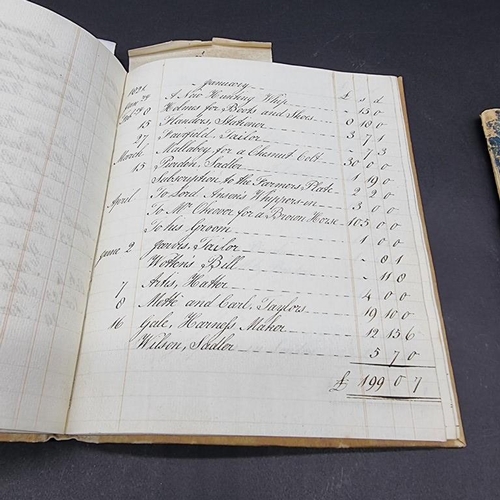 January £ s d
A New Hunting Whip - 15 0
Holmes for Boots and Shoes 8 10 0
13 Flanders, Stationer 3 7 1
27 Fairfield, Tailor - 7 3
March Mallabey for a Chesnut Colt 30 0 0
15 Purdon, Sadler 1 19 0
Subscription to the Farmers Plate 2 2 0
April To Lord Ansons Whippers-in 3 0 0
To Mr Cheever for a Brown Horse 105 0 0
To his Groom 1 0 0
June 2 Jarvis, Tailor - 8 1
Wotten's Bill - 11 8
7 Arts, Hatter 4 0 0
8 Moth and Carl, Taylors 19 10 0
16 Gale, Harness Maker 12 15 6
Wilson, Sadler 5 7 0
£ 199 0 7